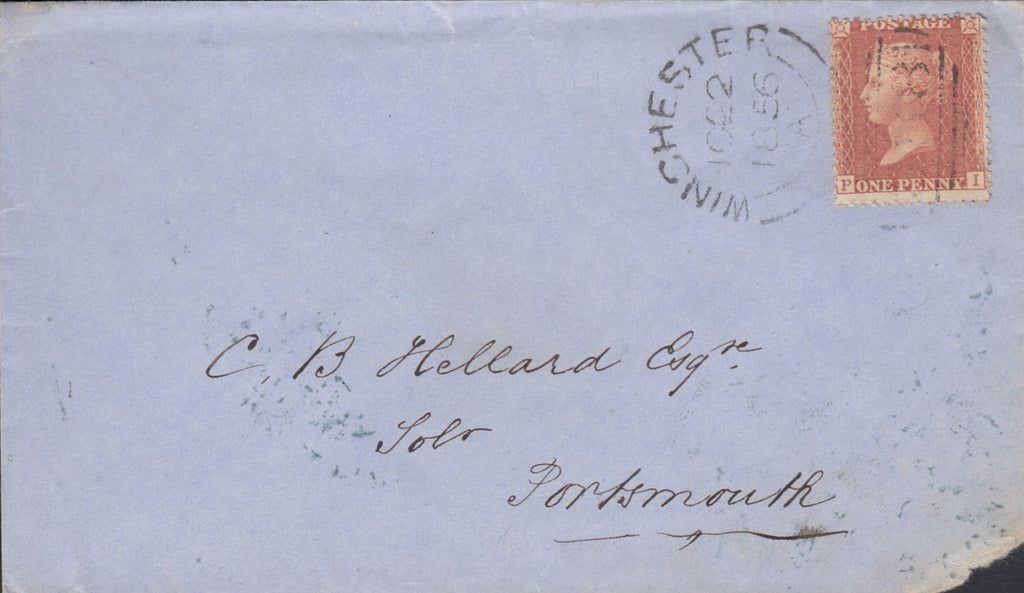 WINCHESTER
OC 22
1856
A
POSTAGE
P ONE PENNY I
C. B Hellard Esqre.
Solr
Portsmouth